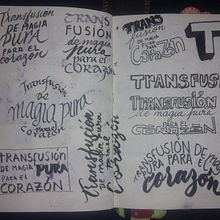 Transfusión
DE MAGIA
pura
PARA EL
corazón
TRANS
FUSIÓN
de magia
pura
PARA EL
CORAZÓN
Transfusión
de
magia pura
para el
Corazón
TRANSFUSIÓN
DE MAGIA PURA
PARA EL
CORAZÓN
Transfusión
de magia pura
para el
corazón
TRANS
fusión
DE MAGIA
PURA
PARA EL
CORAZÓN
T
TRANSFUSIÓN
TRANSFUSIÓN
de magia pura
PARA EL
CORAZÓN
TRANSFUSIÓN DE MAGIA
PURA PARA EL
corazón